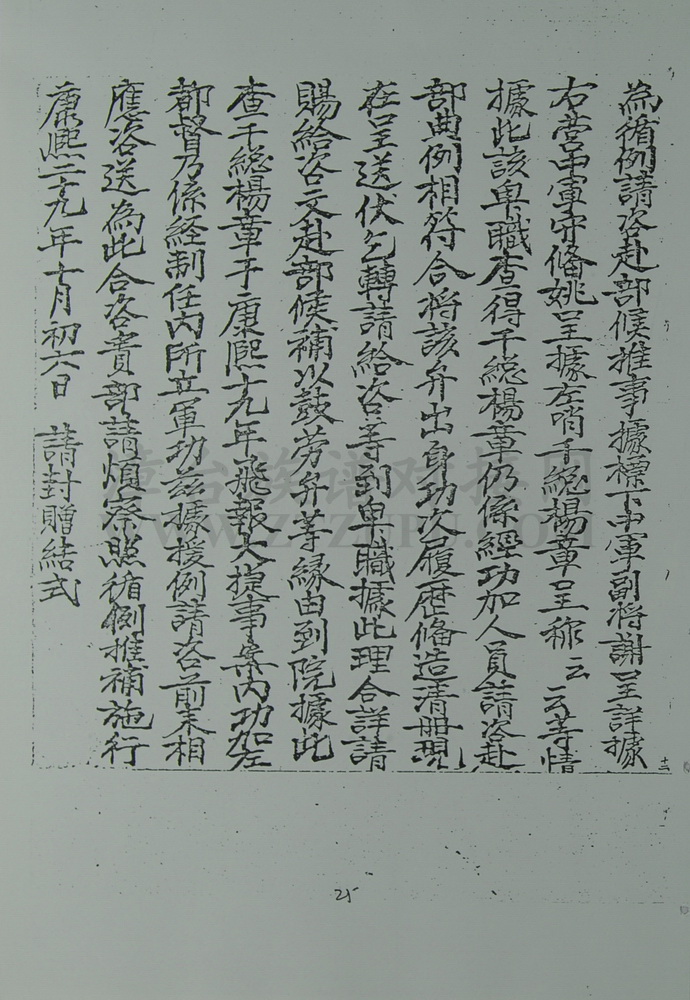 為循例請咨赴部候推事據標下中軍副將謝呈詳據
右營中軍守俻姚呈據左哨千總楊章呈称云云等情
據此該卑職查得千總楊章仍係經功加人員請咨赴
部典例相符合將該弁出身功次履歷俻造清冊現
在呈送伏乞轉請給咨等到卑職據此理合詳請
賜給咨文赴部候補以鼓勞弁等緣由到院據此
查千總楊章于康熙十九年飛報大捷事案內功加左
都督乃係経制任內所立軍功玆據援例請咨前来相
應咨送為此合咨貴部請煩察照循例推補施行
康熙二十九年十月初六日 請封贈結式
十二
25